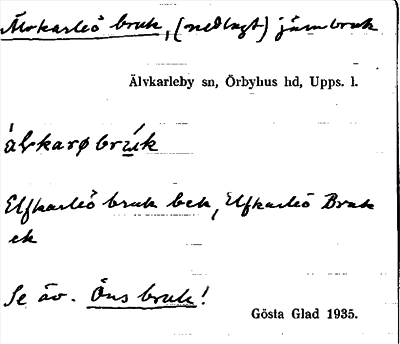 Älvkarleö bruk, (nedlagt) järnbruk
Älvkarleby sn, Örbyhus hd, Upps. l.
álvkarø brúk
Elfkarleö bruk bek, Elfkarleö Bruk
ek
Se äv. Öns bruk!
Gösta Glad 1935.